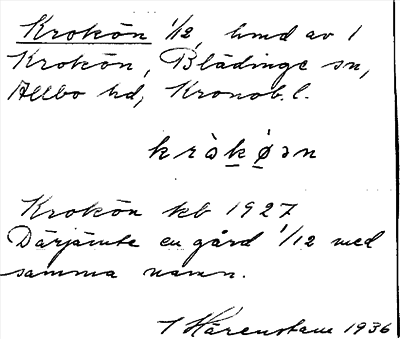 Krokön 1/12, hmd av 1
Krokön, Blädinge sn,
Allbo hd, Kronob. l.
kràkǿən
Krokön kb 1927
Därjämte en gård 1/12 med
samma namn.
I Härenstam 1936